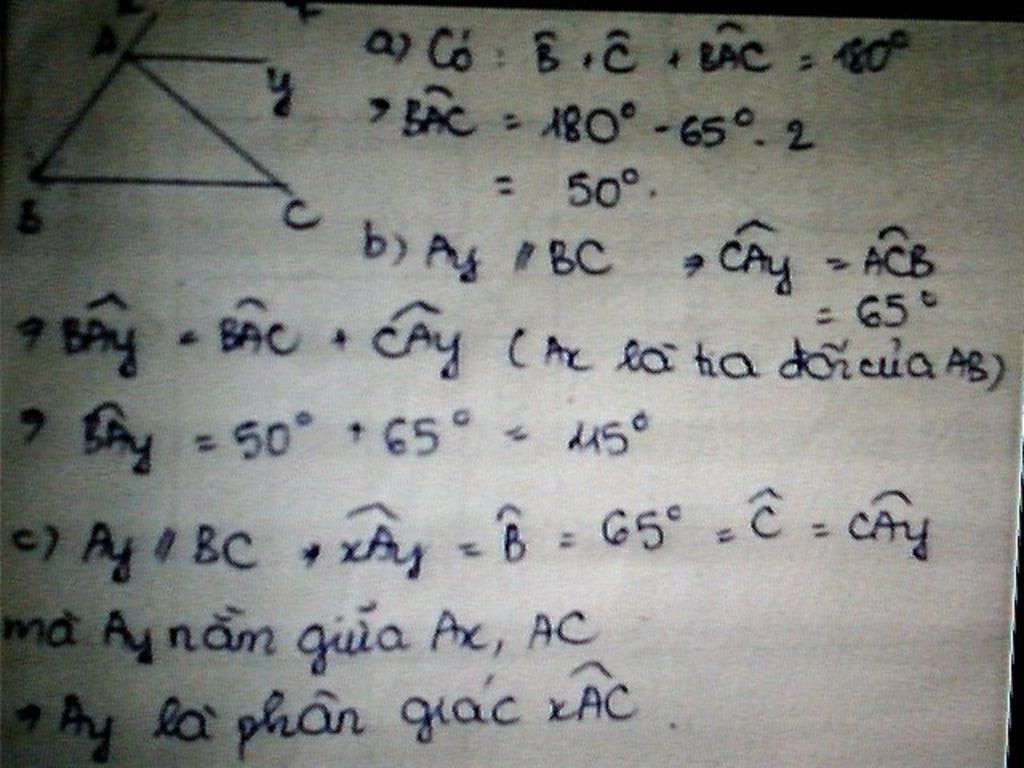 A
y
B
C
a) Có : B̂ + Ĉ + BAC^ = 180°
→ BAC^ = 180° - 65°. 2
= 50°.
b) Ay // BC → CAy^ = ACB^
= 65°
→ BAy^ = BAC^ + CAy^ (Ax là tia đối của AB)
→ BAy^ = 50° + 65° = 115°
c) Ay // BC → xAy^ = B̂ = 65° = Ĉ = CAy^
mà Ay nằm giữa Ax, AC
→ Ay là phân giác xAC^.